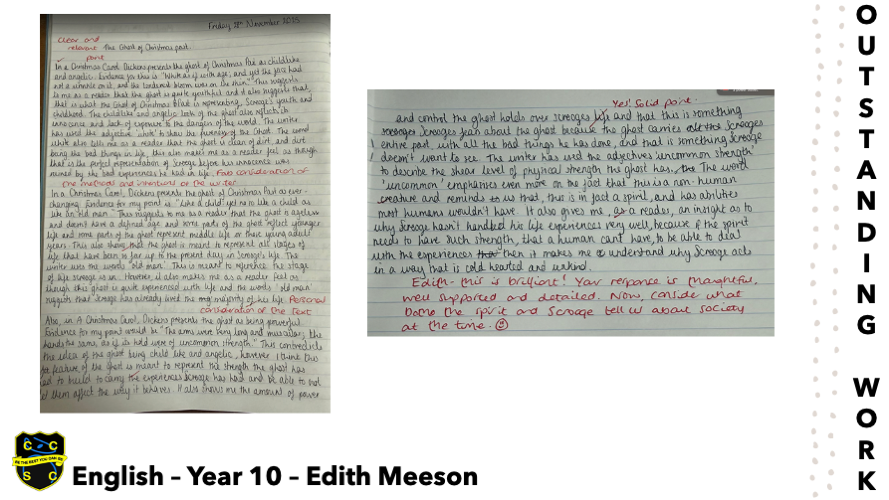 Friday 28th November 2025
Clear and
relevant The Ghost of Christmas past.
point
In a Christmas Carol, Dickens presents the ghost of Christmas Past as childlike
and angelic. Evidence for this is "White as if with age; and yet the face had
not a wrinkle on it, and the tenderest bloom was on the skin." This suggests
to me as a reader that the ghost is quite youthful and it also suggests that
that is what the Ghost of Christmas Past is representing, Scrooge's youth and
childhood. The childlike and angelic look of the ghost also reflects its
innocence and lack of exposure to the dangers of the world. The writer
has used the adjective 'white' to show the of the Ghost. The word
white also tells me as a reader that the ghost is clean of dirt, and dirt
being the bad things in life, this also makes me as a reader feel as though
that is the perfect representation of Scrooge before his innocence was
ruined by the bad experiences he had in life. Fab consideration of
the methods and intentions of the writer
In a Christmas Carol, Dickens presents the ghost of Christmas Past as ever-
changing. Evidence for my point is "Like a child: yet not so like a child as
like an old man." This suggests to me as a reader that the ghost is ageless
and doesn't have a defined age and some parts of the ghost reflect younger
life and some parts of the ghost represent middle life or their young adult
years. This also shows that the ghost is meant to represent all stages of
life that have been so far up to the present day in Scrooge's life. The
writer uses the words 'old man'. This is meant to reference the stage
of life Scrooge is in. However, it also makes me as a reader feel as
though this ghost is quite experienced with life and the words 'old man'
suggests that Scrooge has already lived the majority of his life. Personal
consideration of the text
Also, in A Christmas Carol, Dickens presents the ghost as being powerful.
Evidence for my point would be "The arms were very long and muscular; the
hands the same, as if its hold were of uncommon strength." This contradicts
the idea of the ghost being child like and angelic, however I think this
feature of the ghost is meant to represent the strength the ghost has
had to build to carry the experiences Scrooge has had and be able to not
let them affect the way it behaves. It also shows me the amount of power
Yes! Solid point.
and control the ghost holds over scrooges life and that this is something
Scrooges fears about the ghost because the ghost carries Scrooges
entire past, with all the bad things he has done, and that is something Scrooge
doesn't want to see. The writer has used the adjectives 'uncommon strength'
to describe the shear level of physical strength the ghost has. The word
'uncommon' emphasises even more on the fact that this is a non-human
creature and reminds us that, this is in fact a spirit, and has abilities
most humans wouldn't have. It also gives me, as a reader, an insight as to
why Scrooge hasn't handled his life experiences very well, because if the spirit
needs to have such strength, that a human can't have, to be able to deal
with the experiences then it makes me understand why Scrooge acts
in a way that is cold hearted and unkind.
Edith - this is brilliant! Your response is thoughtful,
well supported and detailed. Now, consider what
both the spirit and Scrooge tell us about society
at the time.
OUTSTANDING WORK
C C
BE THE BEST YOU CAN BE
S C
English – Year 10 – Edith Meeson